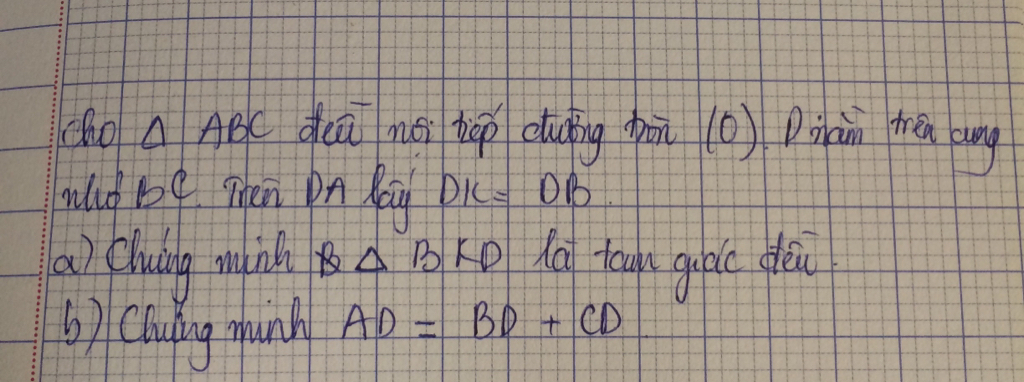 Cho Δ ABC đều nội tiếp đường tròn (O). D nằm trên cung
nhỏ BC. Trên DA lấy DK = DB.
a) Chứng minh Δ BKD là tam giác đều.
b) Chứng minh AD = BD + CD